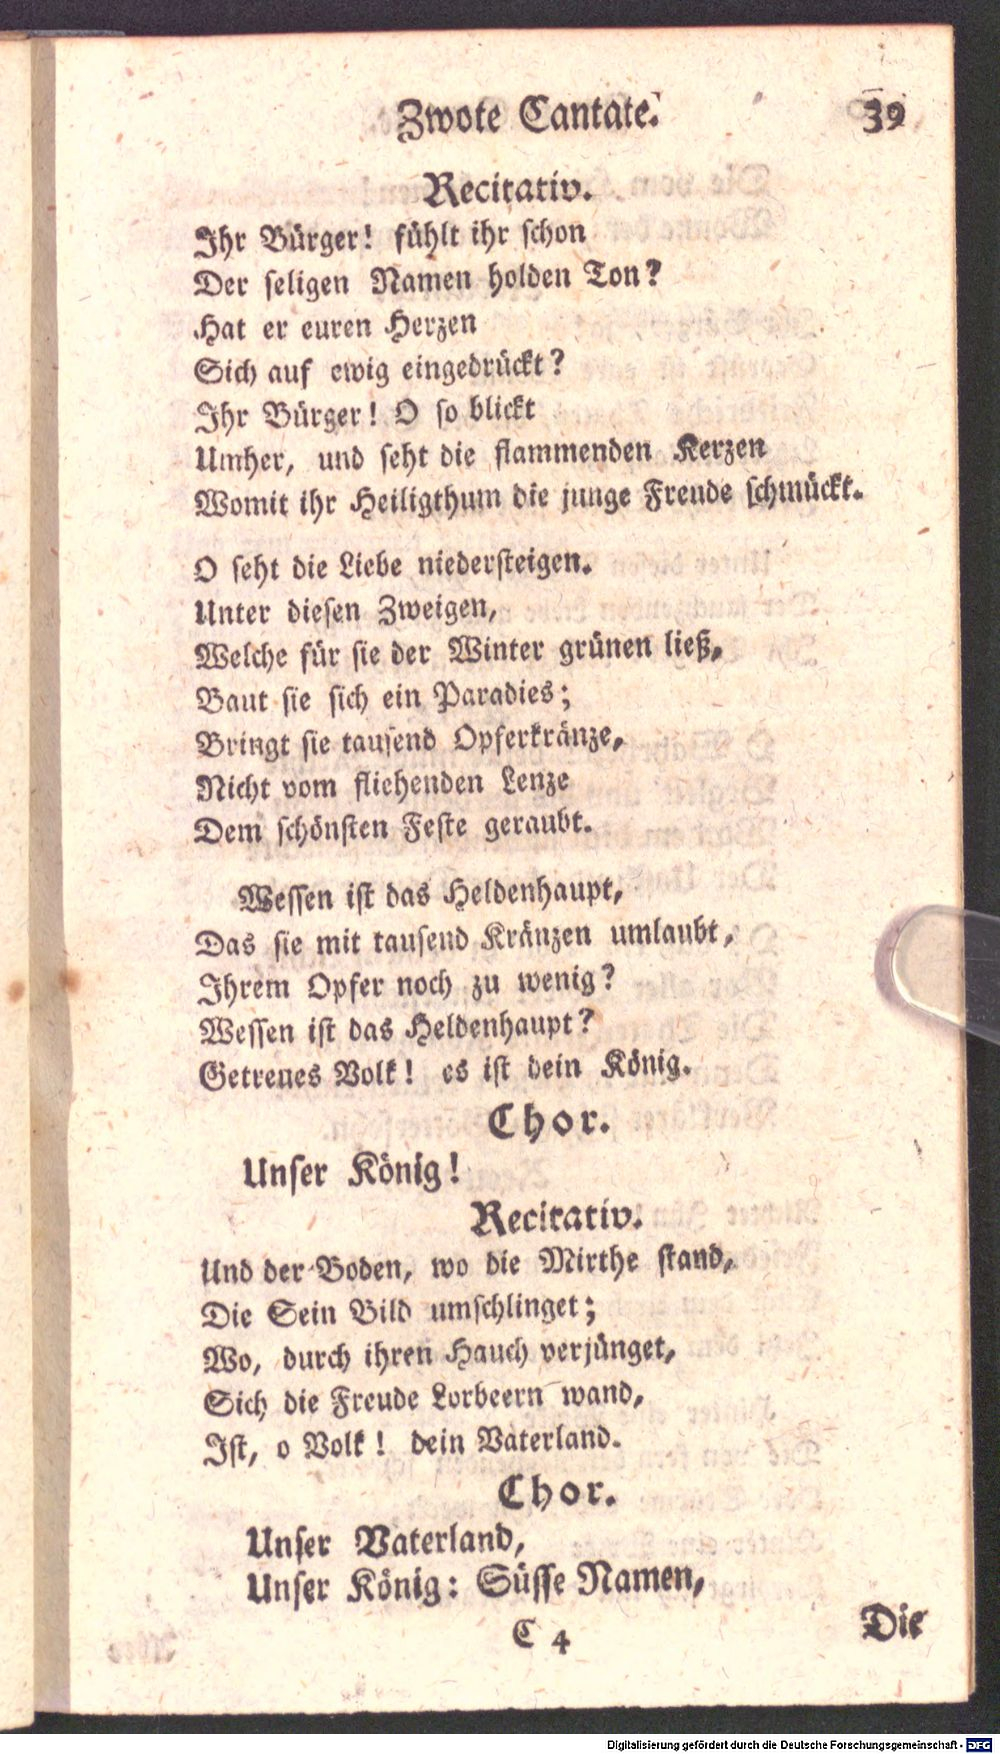 Zwote Cantate. 39
Recitativ.
Ihr Bürger! fühlt ihr schon
Der seligen Namen holden Ton?
Hat er euren Herzen
Sich auf ewig eingedrückt?
Ihr Bürger! O so blickt
Umher, und seht die flammenden Kerzen
Womit ihr Heiligthum die junge Freude schmückt.
O seht die Liebe niedersteigen.
Unter diesen Zweigen,
Welche für sie der Winter grünen ließ,
Baut sie sich ein Paradies;
Bringt sie tausend Opferkränze,
Nicht vom fliehenden Lenze
Dem schönsten Feste geraubt.
Wessen ist das Heldenhaupt,
Das sie mit tausend Kränzen umlaubt,
Ihrem Opfer noch zu wenig?
Wessen ist das Heldenhaupt?
Getreues Volk! es ist dein König.
Chor.
Unser König!
Recitativ.
Und der Boden, wo die Mirthe stand,
Die Sein Bild umschlinget;
Wo, durch ihren Hauch verjünget,
Sich die Freude Lorbeern wand,
Ist, o Volk! dein Vaterland.
Chor.
Unser Vaterland,
Unser König: Süsse Namen,
C 4 Die
Digitalisierung gefördert durch die Deutsche Forschungsgemeinschaft - DFG